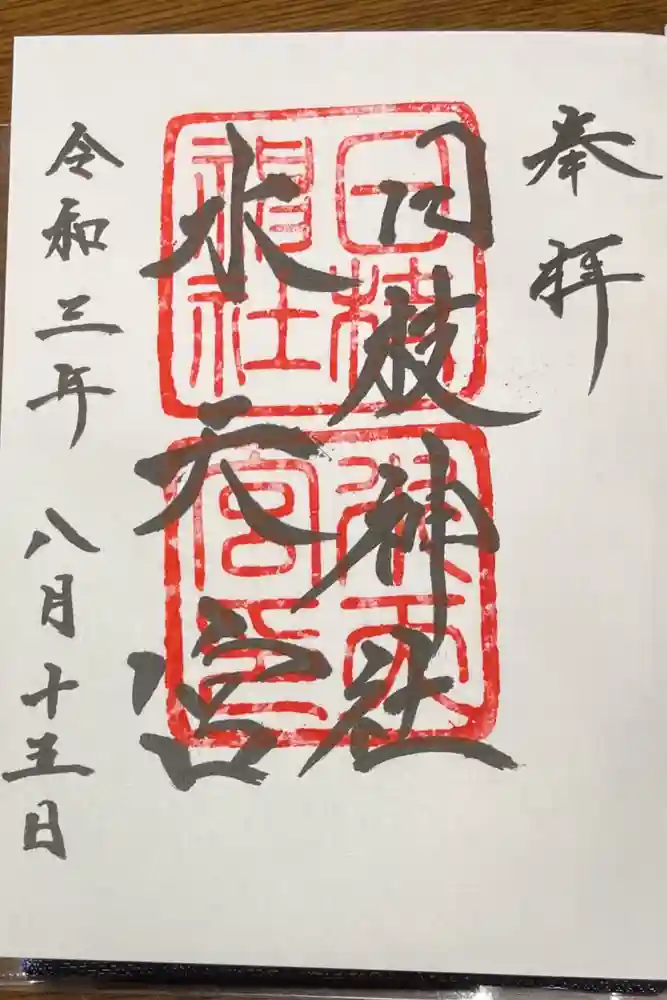 奉拝
日枝神社
水天宮
令和三年 八月十五日
日枝
神社
水天
宮印